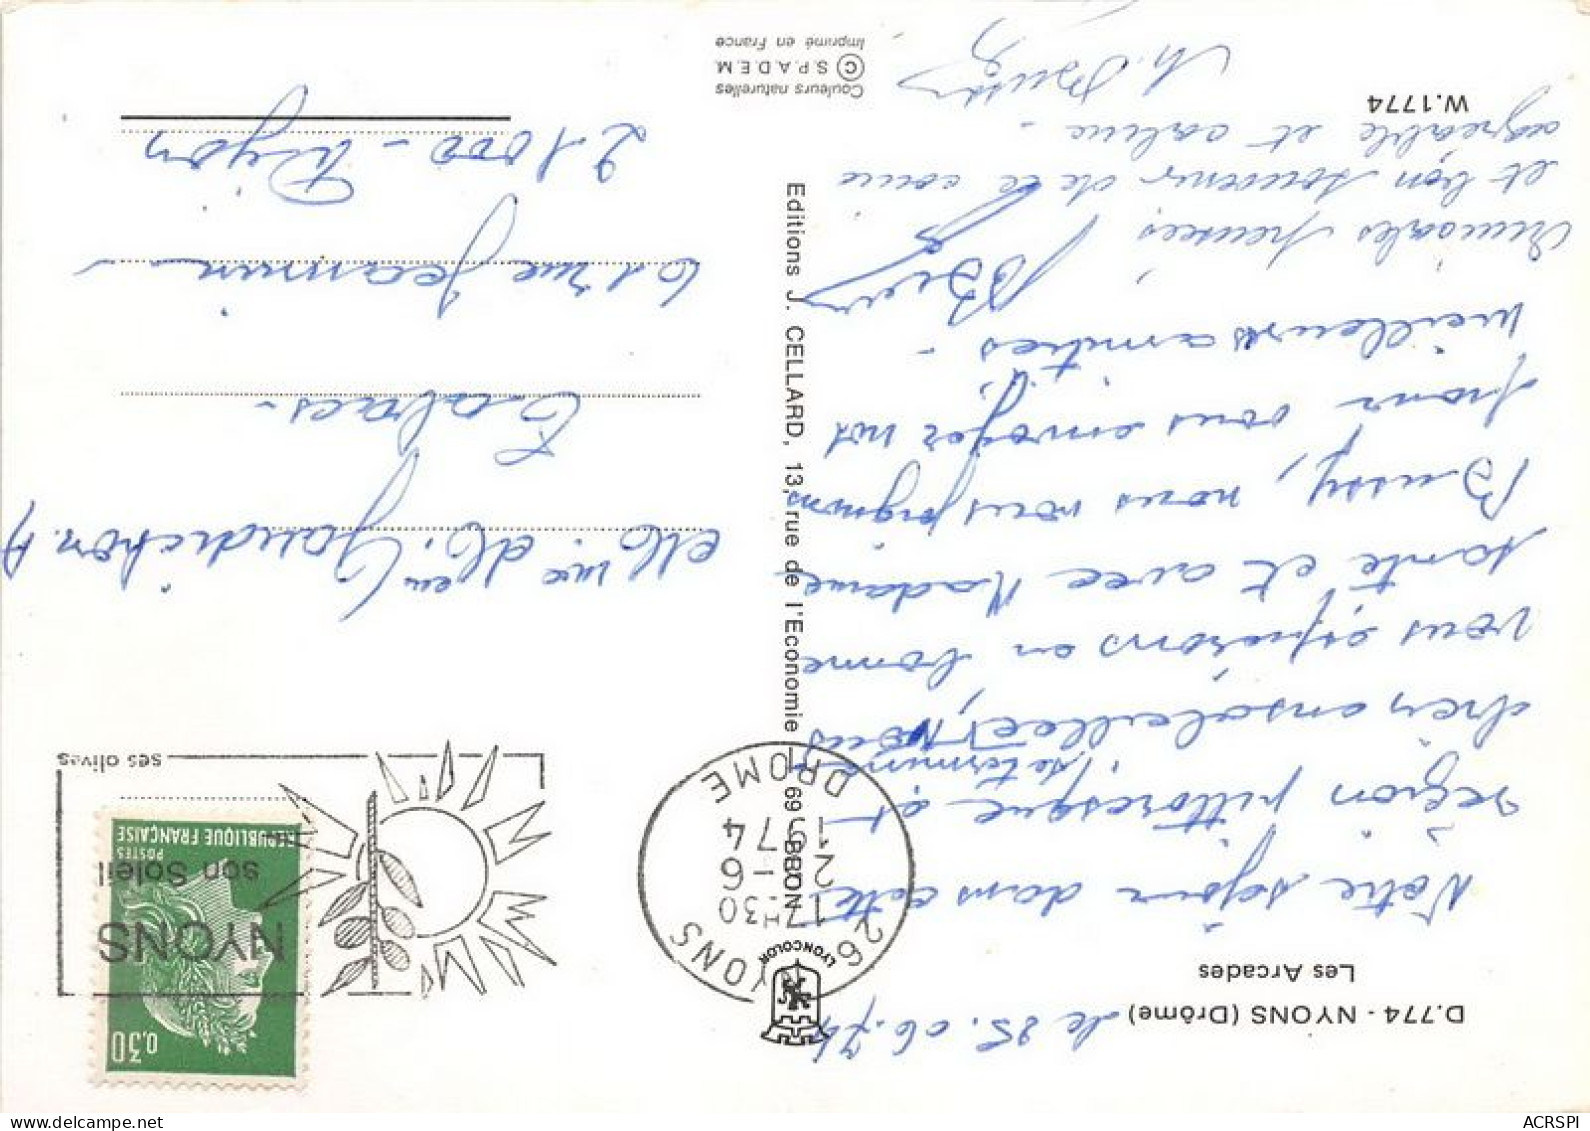 D.774 - NYONS (Drôme)
Les Arcades
le 25.06.74
Notre séjour dans cette
région pittoresque et
très ensoleillée, se termine, Nous
vous espérons en bonne
santé et avec Madame
Bussy, nous vous joignons
pour vous envoyer nos
meilleures amitiés -
Amicales pensées
et bon souvenir de ce coin
agréable et calme -
W.1774
Editions J. CELLARD, 13, rue de l'Economie - 69 - BRON
LYONCOLOR
Couleurs naturelles
© S.P.A.D.E.M.
Imprimé en France
26 NYONS
17H30
21-6
1974
DROME
NYONS
son Soleil
ses olives
0,30
POSTES
REPUBLIQUE FRANÇAISE
Mme M. Gaudichon. A
Tabacs -
61 rue Jeannin -
21000 - Dijon
ACRSPI